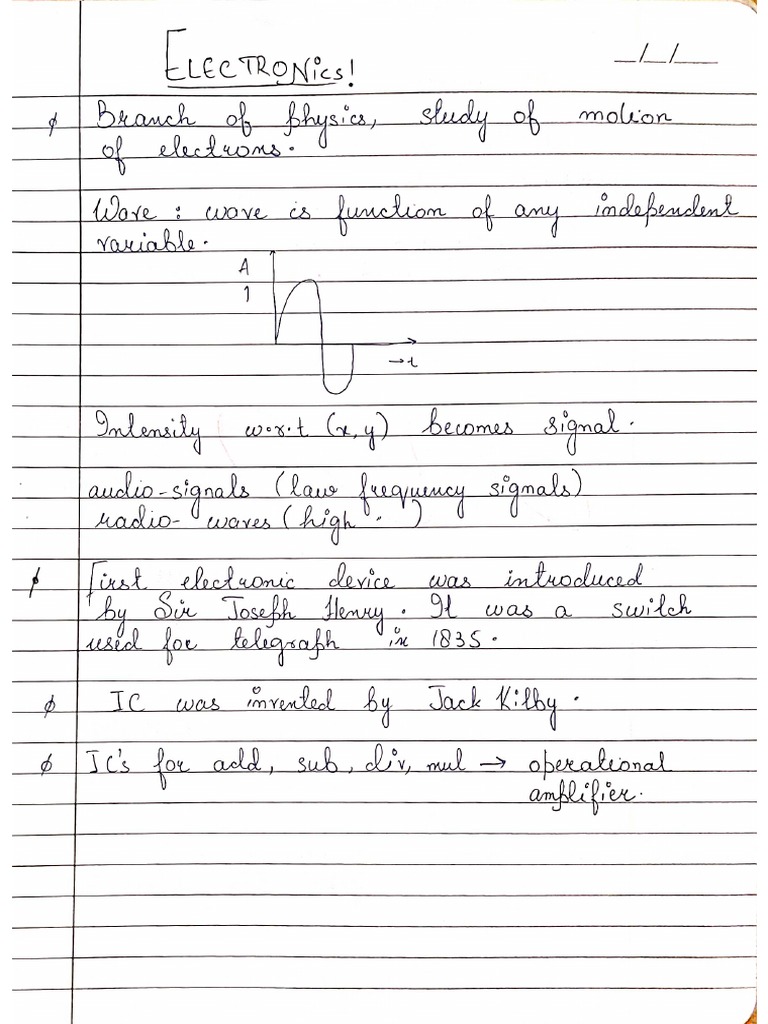 ELECTRONICS!
_/_/__
Branch of physics, study of motion
of electrons.
Wave : wave is function of any independent
variable.
A
1
→t
Intensity w.r.t (x,y) becomes signal.
audio-signals (law frequency signals)
radio- waves (high . )
First electronic device was introduced
by Sir Joseph Henry. It was a switch
used for telegraph in 1835.
IC was invented by Jack Kilby.
IC's for add, sub, div, mul → operational
amplifier.